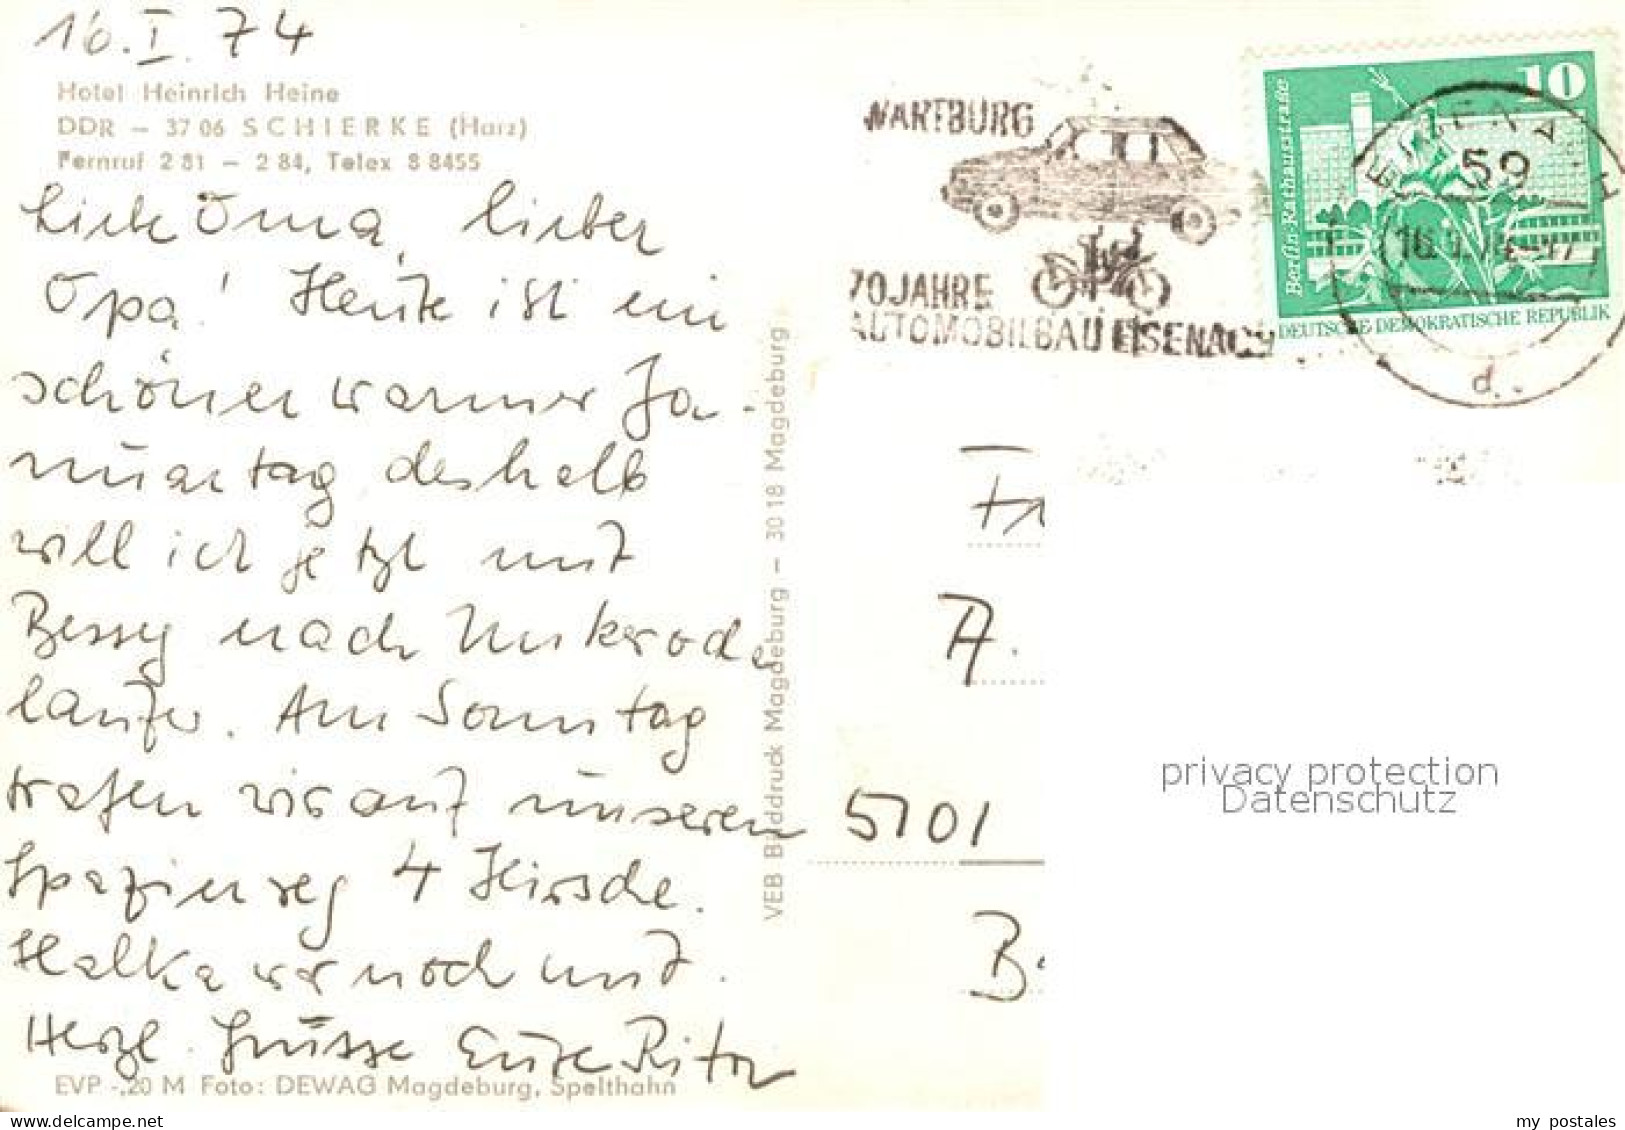 16.I.74
Hotel Heinrich Heine
DDR – 37 06 SCHIERKE (Harz)
Fernruf 2 81 – 2 84, Telex 8 8455
Liebe Oma, lieber
Opa! Heute ist ein
schöner warmer Ja-
nuartag deshalb
will ich jetzt mit
Bessy nach Unkeroda
laufen. Am Sonntag
trafen wir auf unseren
Spazierweg 4 Hirsche.
Halka war noch mit.
Herzl. Grüsse Eure Rita
EVP -,20 M Foto: DEWAG Magdeburg, Spelthahn
VEB Bilddruck Magdeburg – 30 18 Magdeburg
WARTBURG
70 JAHRE
AUTOMOBILBAU EISENACH
10
Berlin-Rathausstraße
DEUTSCHE DEMOKRATISCHE REPUBLIK
EISENACH
59
d
A.
5101
privacy protection
Datenschutz
delcampe.net
my_postales